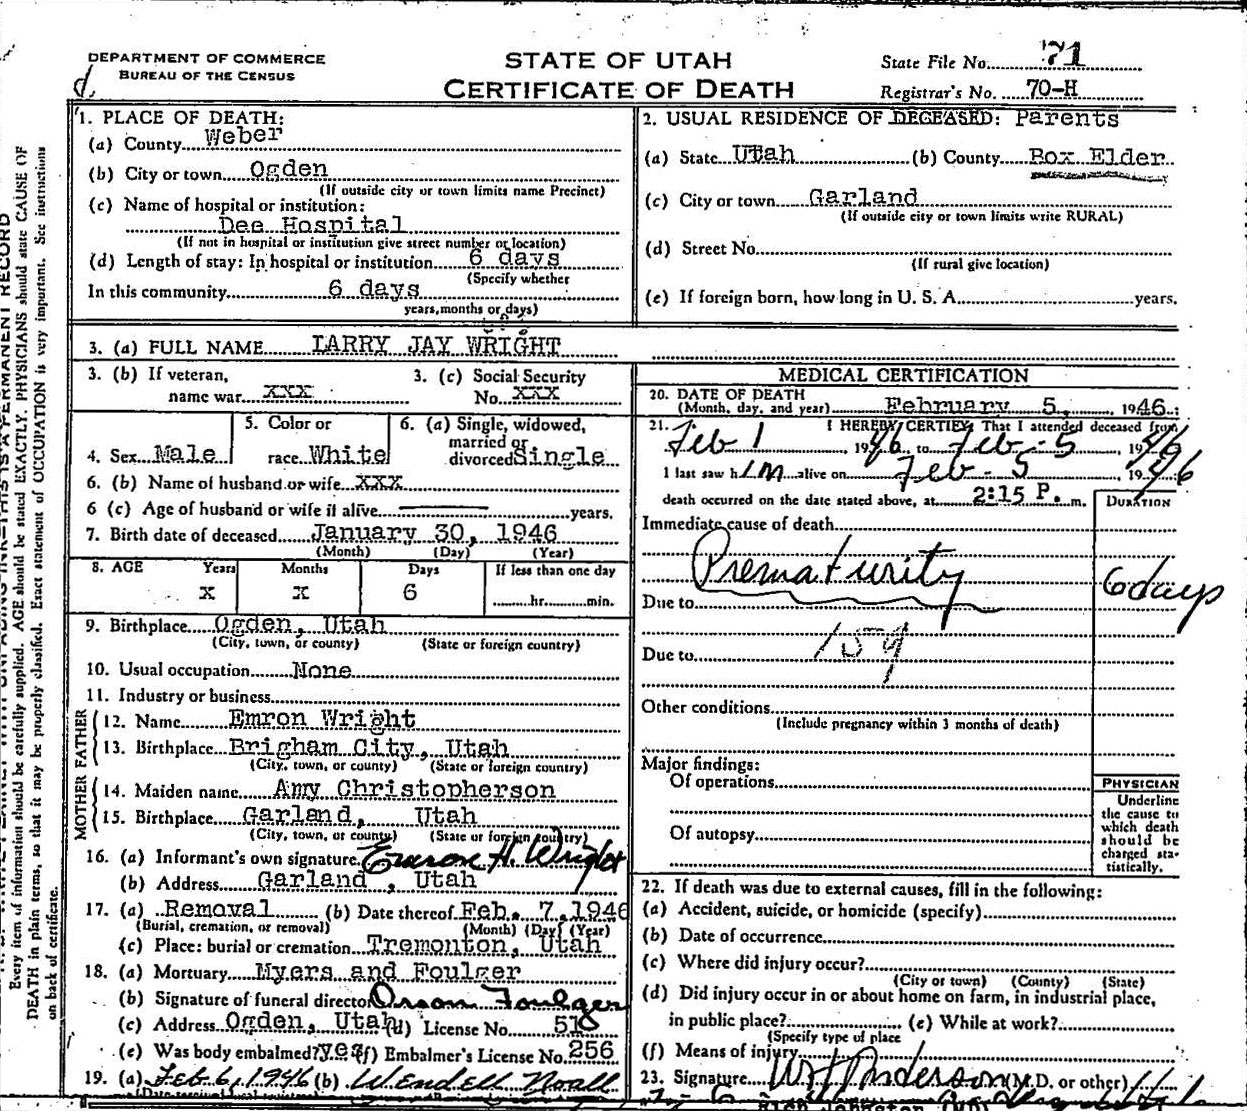 DEPARTMENT OF COMMERCE
BUREAU OF THE CENSUS
d.
STATE OF UTAH
CERTIFICATE OF DEATH
State File No. 71
Registrar's No. 70-H
1. PLACE OF DEATH:
(a) County Weber
(b) City or town Ogden
(If outside city or town limits name Precinct)
(c) Name of hospital or institution:
Dee Hospital
(If not in hospital or institution give street number or location)
(d) Length of stay: In hospital or institution 6 days
(Specify whether
In this community 6 days
years, months or days)
2. USUAL RESIDENCE OF DECEASED: Parents
(a) State Utah (b) County Box Elder
(c) City or town Garland
(If outside city or town limits write RURAL)
(d) Street No.
(If rural give location)
(e) If foreign born, how long in U. S. A. years.
3. (a) FULL NAME LARRY JAY WRIGHT
3. (b) If veteran,
name war XXX
3. (c) Social Security
No. XXX
4. Sex Male
5. Color or
race White
6. (a) Single, widowed,
married or
divorced Single
6. (b) Name of husband or wife XXX
6 (c) Age of husband or wife if alive years.
7. Birth date of deceased January 30, 1946
(Month) (Day) (Year)
8. AGE Years Months Days If less than one day
X X 6 hr. min.
9. Birthplace Ogden, Utah
(City, town, or county) (State or foreign country)
10. Usual occupation None
11. Industry or business
FATHER
12. Name Emron Wright
13. Birthplace Brigham City, Utah
(City, town, or county) (State or foreign country)
MOTHER
14. Maiden name Amy Christopherson
15. Birthplace Garland, Utah
(City, town, or county) (State or foreign country)
16. (a) Informant's own signature Emron H. Wright
(b) Address Garland, Utah
17. (a) Removal (b) Date thereof Feb. 7, 1946
(Burial, cremation, or removal) (Month) (Day) (Year)
(c) Place: burial or cremation Tremonton, Utah
18. (a) Mortuary Myers and Foulger
(b) Signature of funeral director Orson Foulger
(c) Address Ogden, Utah (d) License No. 518
(e) Was body embalmed? yes (f) Embalmer's License No. 256
19. (a) Feb 6, 1946 (b) Wendell Noall
MEDICAL CERTIFICATION
20. DATE OF DEATH
(Month, day, and year) February 5, 1946
21. I HEREBY CERTIFY, That I attended deceased from
Feb 1, 1946 to Feb - 5, 1946
I last saw him alive on Feb - 5 1946
death occurred on the date stated above, at 2:15 P. m.
DURATION
Immediate cause of death
Prematurity 6 days
Due to
159
Due to
Other conditions
(Include pregnancy within 3 months of death)
Major findings:
Of operations
Of autopsy
PHYSICIAN
Underline
the cause to
which death
should be
charged sta-
tistically.
22. If death was due to external causes, fill in the following:
(a) Accident, suicide, or homicide (specify)
(b) Date of occurrence
(c) Where did injury occur?
(City or town) (County) (State)
(d) Did injury occur in or about home on farm, in industrial place,
in public place? (e) While at work?
(Specify type of place
(f) Means of injury
23. Signature (M.D. or other)
Every item of information should be carefully supplied. AGE should be stated EXACTLY. PHYSICIANS should state CAUSE OF
DEATH in plain terms, so that it may be properly classified. Exact statement of OCCUPATION is very important. See instructions
on back of certificate.